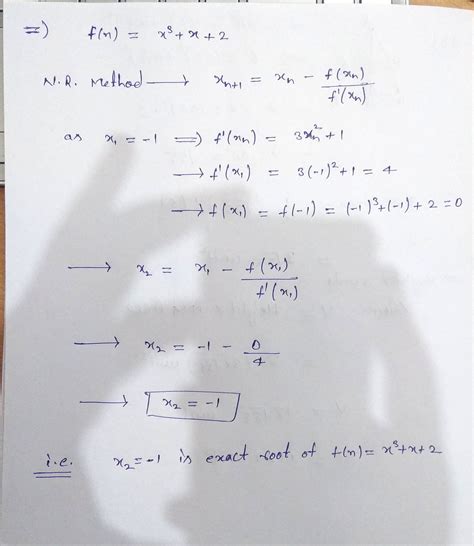 =) f(n) = x³ + x + 2
N.R. Method ⟶ xₙ₊₁ = xₙ - f(xₙ)/f'(xₙ)
as x₁ = -1 ⟹ f'(xₙ) = 3xₙ² + 1
⟶ f'(x₁) = 3(-1)² + 1 = 4
⟶ f(x₁) = f(-1) = (-1)³ + (-1) + 2 = 0
⟶ x₂ = x₁ - f(x₁)/f'(x₁)
⟶ x₂ = -1 - 0/4
⟶ x₂ = -1
i.e. x₂ = -1 is exact root of f(n) = x³ + x + 2